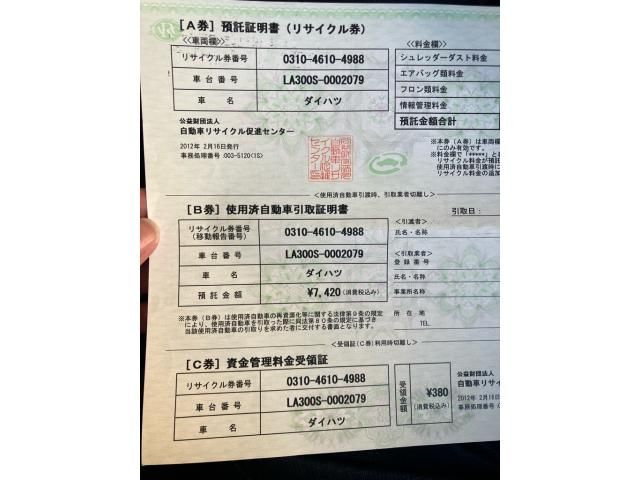 [A券] 預託証明書(リサイクル券)
≪車両欄≫
≪料金欄≫
リサイクル券番号 0310-4610-4988
シュレッダーダスト料金
車台番号 LA300S-0002079
エアバッグ類料金
フロン類料金
車名 ダイハツ
情報管理料金
預託金額合計
公益財団法人
自動車リサイクル促進センター
2012年 2月16日発行
事務処理番号:003-5120(1S)
※本券(A券)は車両欄
にのみ有効です。
※料金欄で「*****」と
リサイクル料金が預託
使用済自動車引渡時に
リサイクル料金の追加
<使用済自動車引渡時、引取業者切離し>
[B券] 使用済自動車引取証明書
引取日:
リサイクル券番号
(移動報告番号) 0310-4610-4988
<引渡者>
氏名・名称
車台番号 LA300S-0002079
<引取業者>
登録番号
車名 ダイハツ
氏名・名称
預託金額 ¥7,420(消費税込み)
事業所名称
※本券(B券)は使用済自動車の再資源化等に関する法律第9条の規定
により、使用済自動車を引取った際に同法第80条の規定に基づき
当該使用済自動車の引取りを求めた者に交付する書面となります。
所在地
TEL
<受領証(C券)利用時切離し>
[C券] 資金管理料金受領証
リサイクル券番号 0310-4610-4988
車台番号 LA300S-0002079
車名 ダイハツ
受領金額
¥380
(消費税込み)
公益財団法人
自動車リサイ
2012年 2月16日
事務処理番号:003